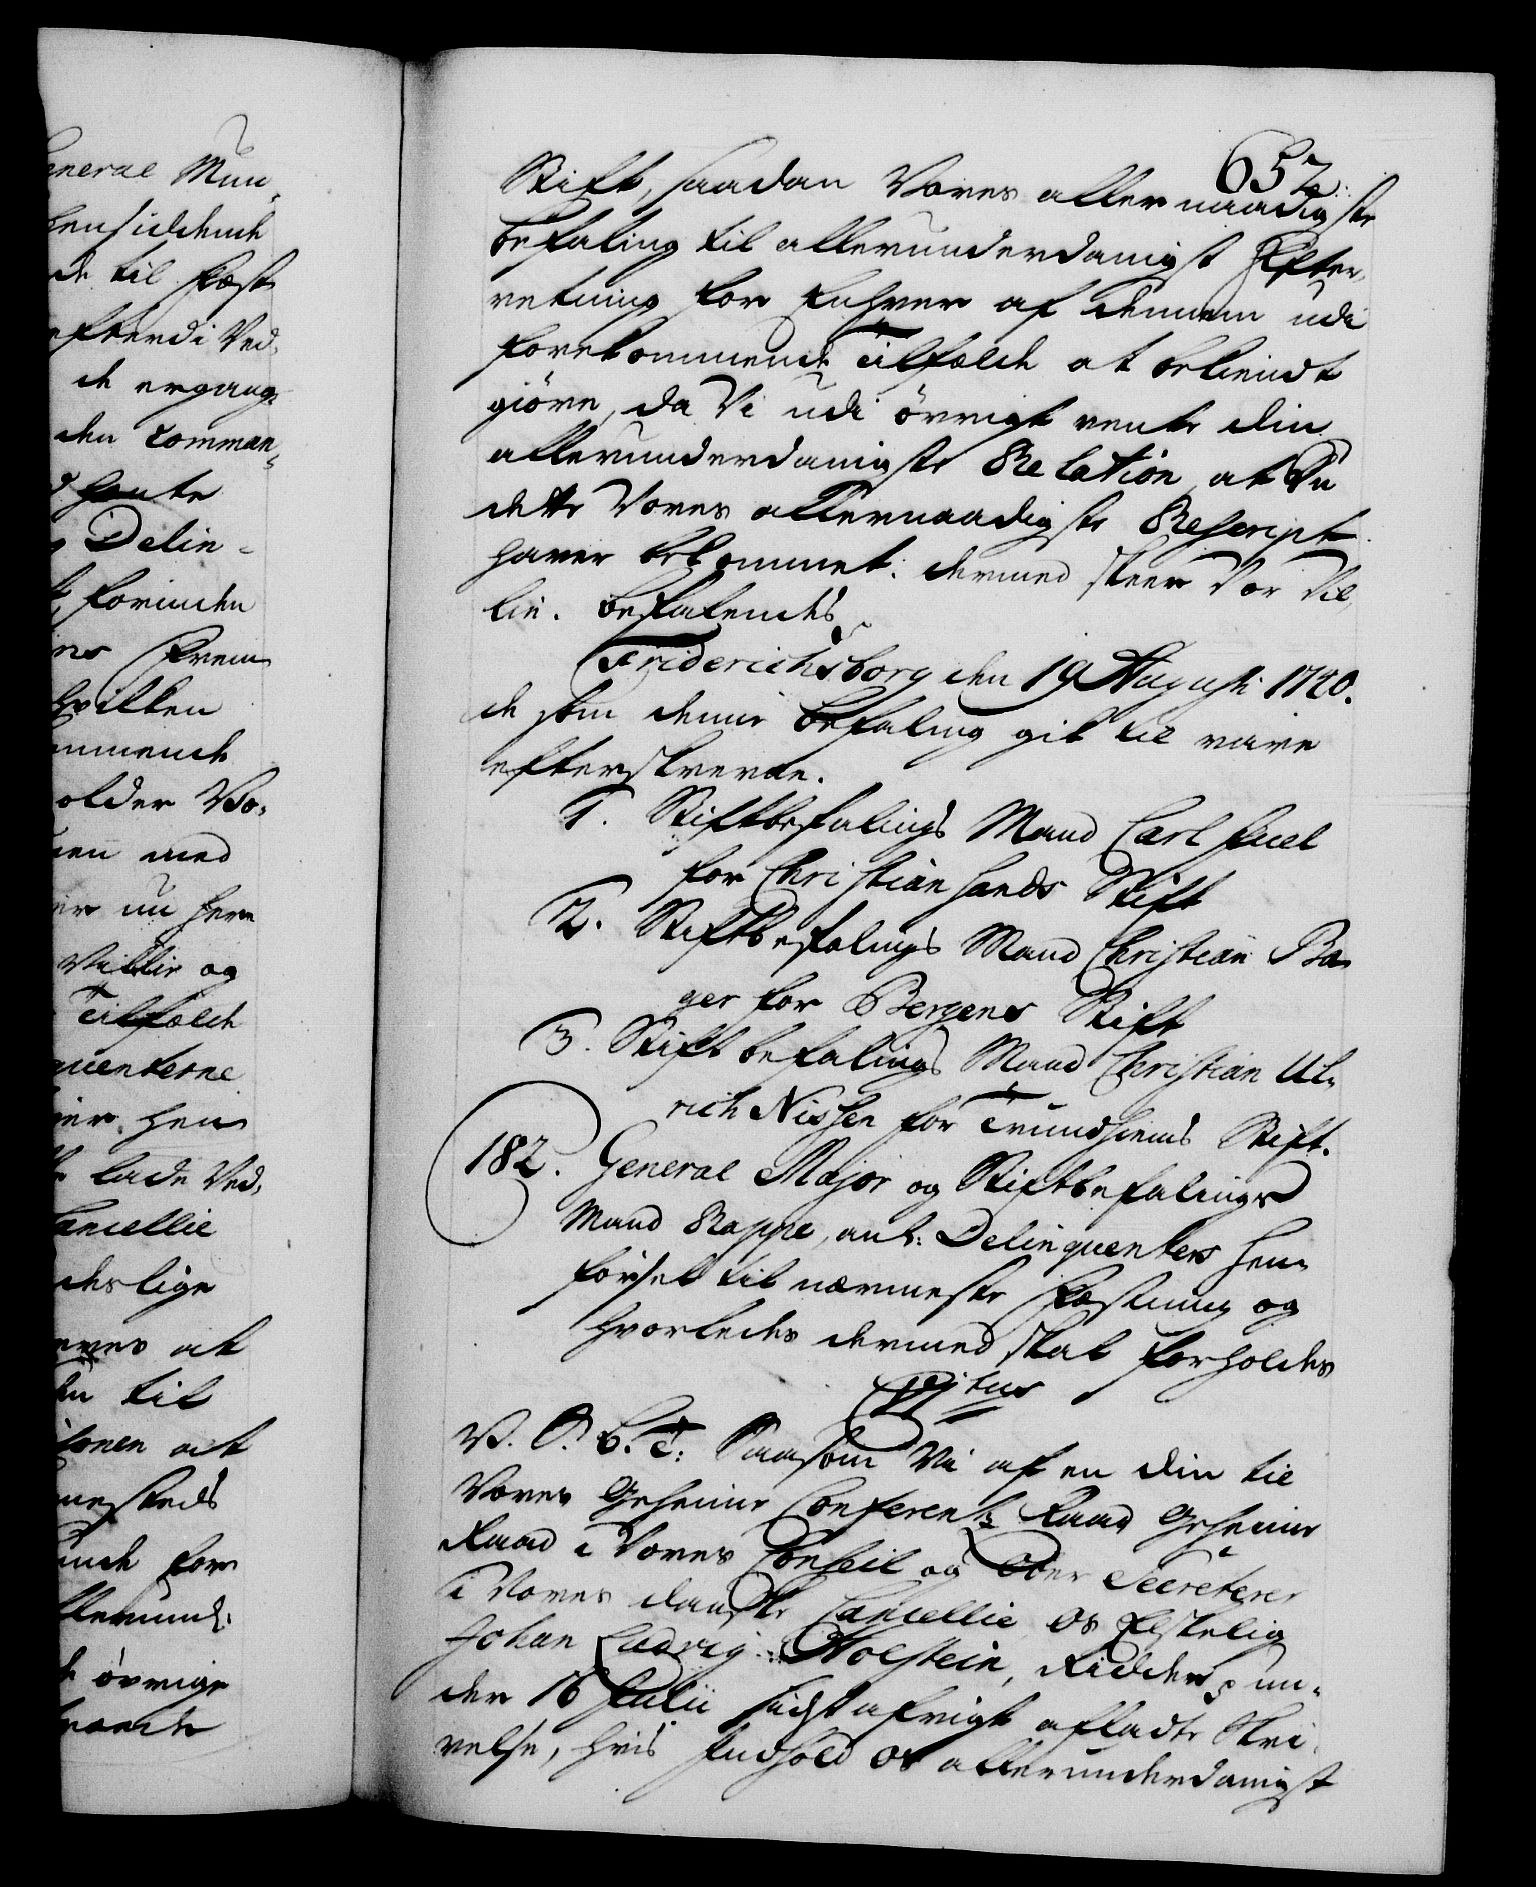 eneral Mun-
hensiddende
de til Fæst
efterdi Ved,
de ergang,
den Comman,
Delin-
forinden
hvilken
ommende
holder Vo,
men med
er nu here
Villie og
Tilfælde
quenterne
hen
lade Ved,
Cancellie
deslige
eres at
til
tonen at
nesteds
ende for
llerund:
øvrige
652.
Stift, saadan Vores allernaadigste
Befaling til allerunderdanigst Efter,
retning for Enhver af dennem udi
forekommende Tilfælde at bekiendt
giøre, da Vi udi øvrigt vente din
allerunderdanigste Relation, at Du
dette Vores allernaadigste Rescript
haver bekommet. dermed skeer Vor Vil,
lie. Befalendes
Friderichsborg den 19 Augusti 1740.
de som denne Befaling gik til vare
efterskrevne.
1. Stiftbefalings Mand Carl Juel
for Christiansands Stift
2. Stiftbefalings Mand Christian Ba
ger for Bergens Stift
3. Stiftbefalings Mand Christian Ul,
rich Nissen for Trundhiems Stift.
182. General Major og Stiftbefalings
Mand Rappe, anl: Delinquenters hen,
førsel til nærmeste Fæstning og
hvorledes dermed skal forholdes
C. 6.T: Saasom Vi af en din til
Vores Geheime Conferentz Raad Geheime
Raad i Vores Conseil og Ober Secreterer
i Vores danske Cancellie, Os Elskelig
Johan Ludvig Holstein, Ridder, un,
der 16 Julii sidst afvigt afladte Skri,
velse, hvis Indhold Os allerunderdanigst